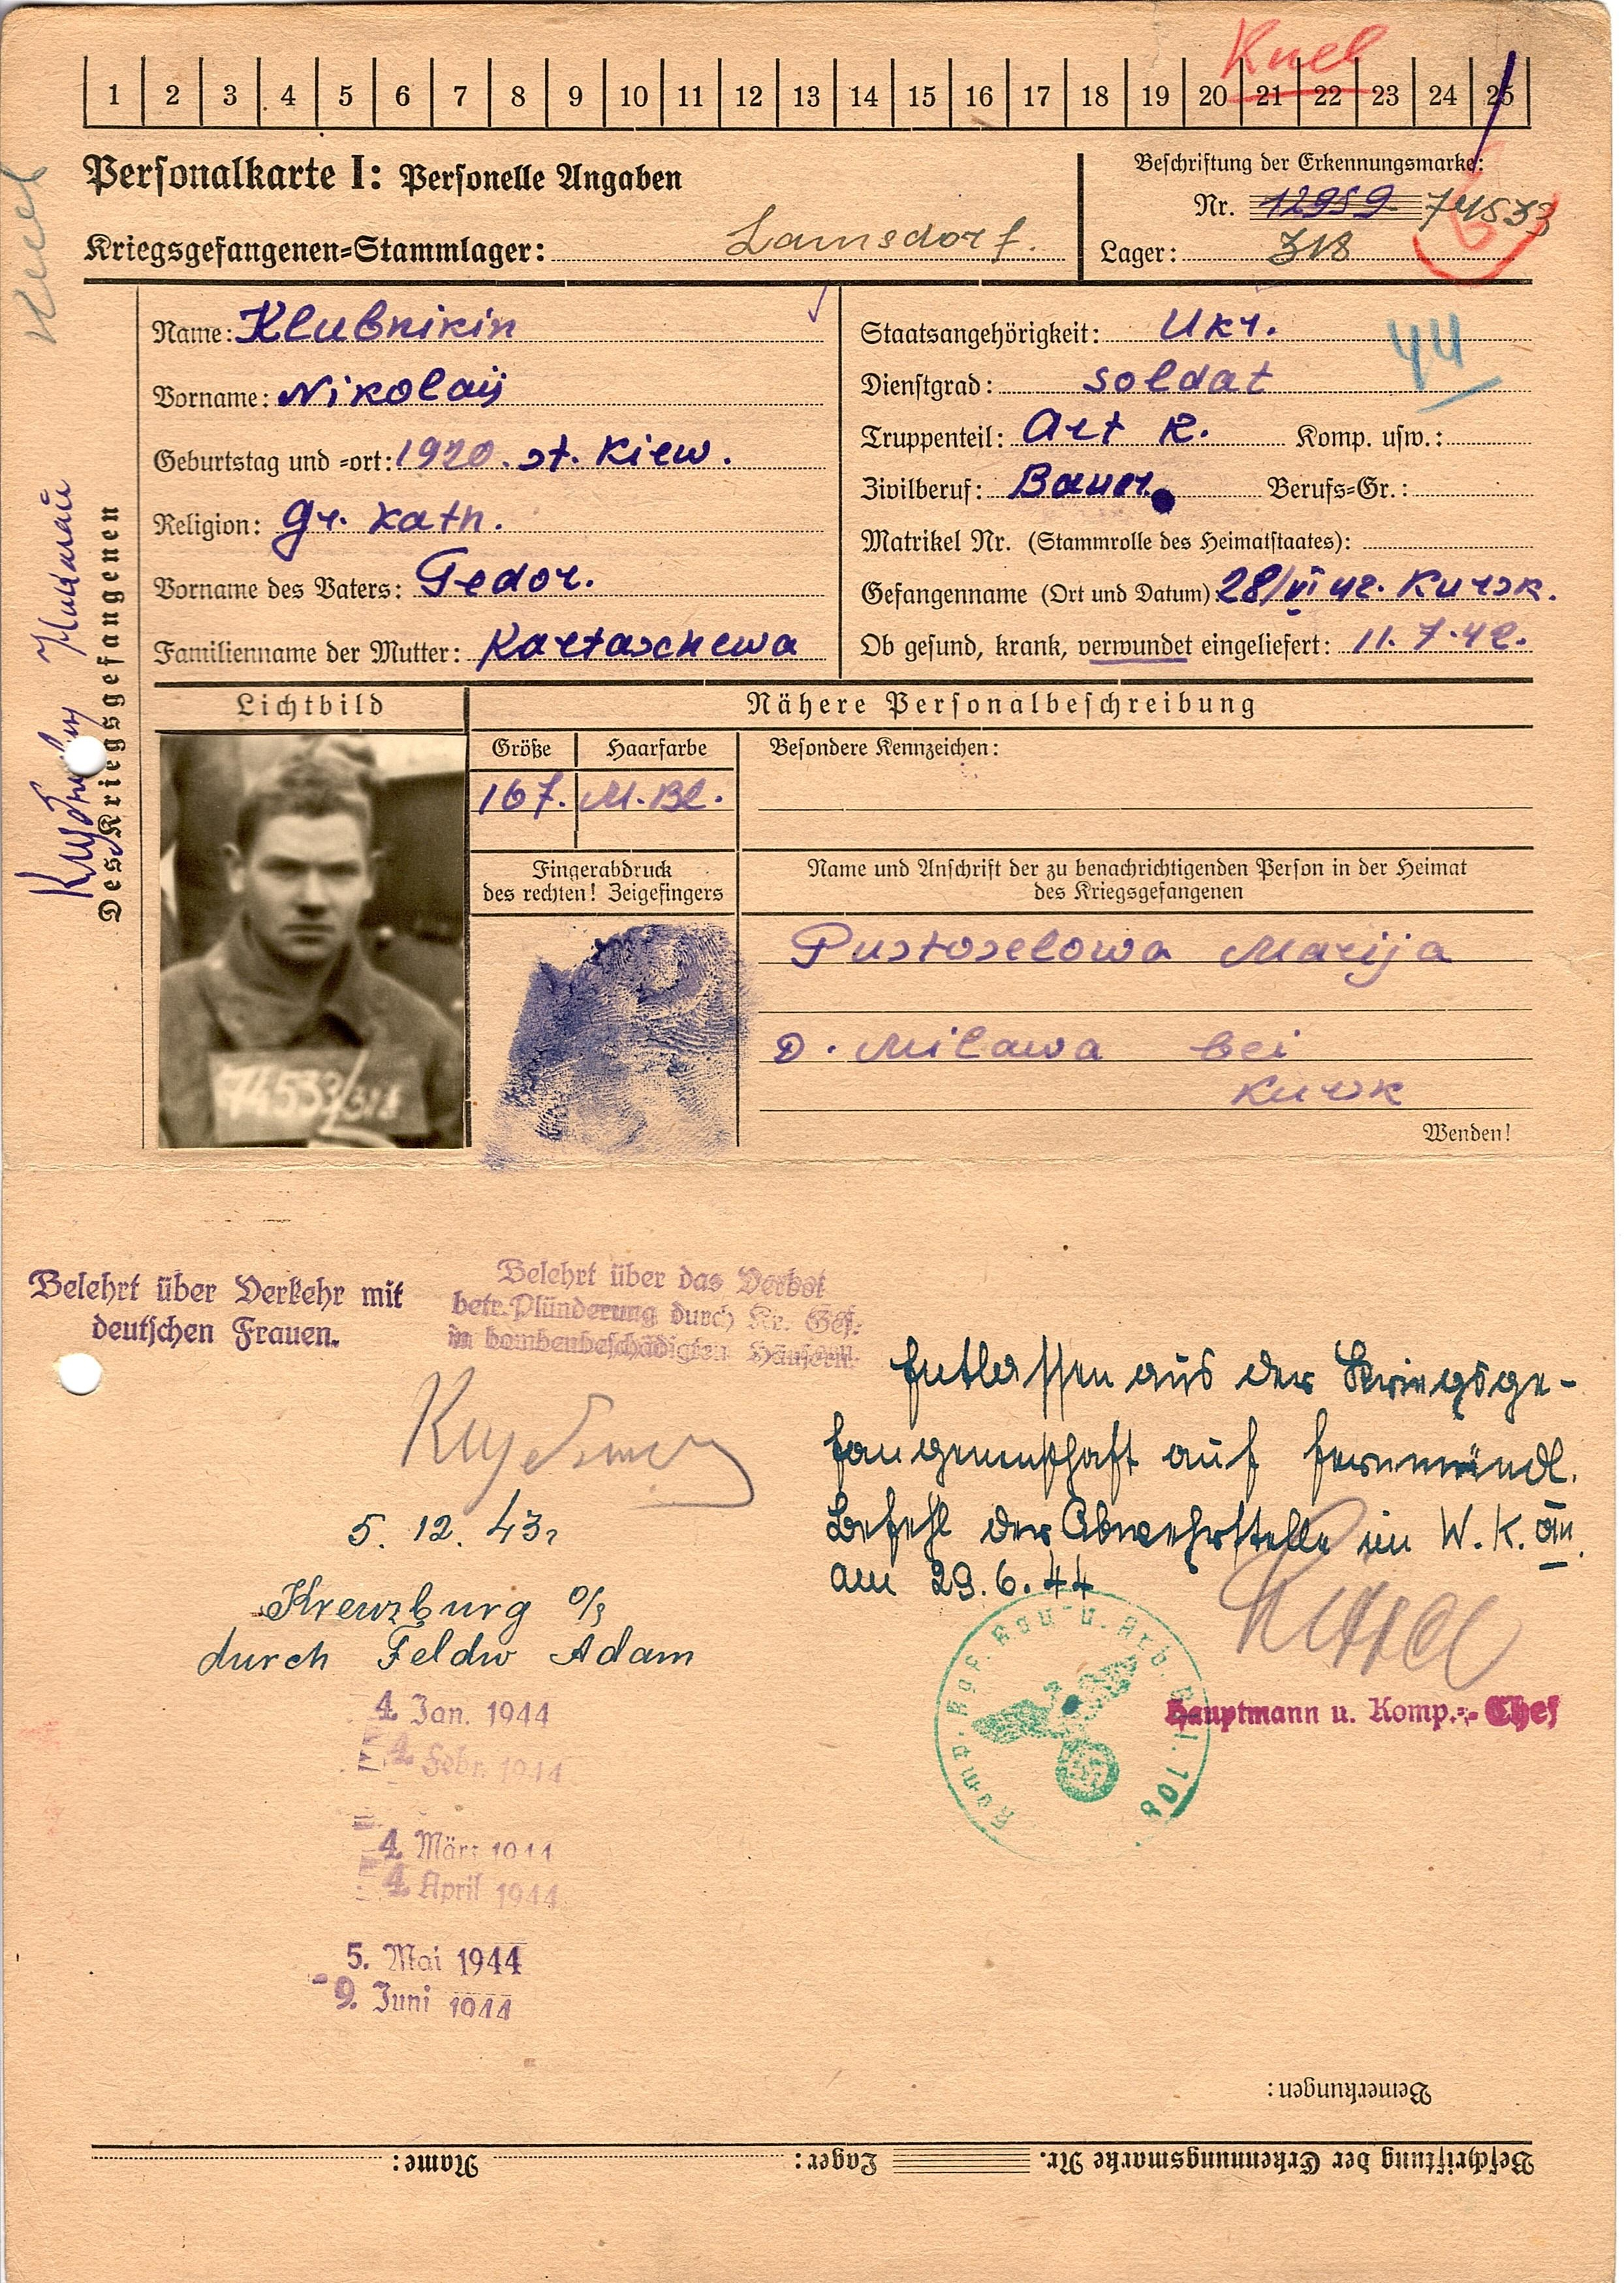 1 2 3 4 5 6 7 8 9 10 11 12 13 14 15 16 17 18 19 20 21 22 23 24 25
Personalkarte I: Personelle Angaben
Beschriftung der Erkennungsmarke:
Nr. 12959 74533
Kriegsgefangenen=Stammlager: Lamsdorf.
Lager: 318
Des Kriegsgefangenen
Name: Klubnikin
Vorname: Nikolaij
Geburtstag und =ort: 1920. st. Kiew.
Religion: gr. kath.
Vorname des Vaters: Fedor.
Familienname der Mutter: Kartaschewa
Staatsangehörigkeit: Ukr.
44
Dienstgrad: soldat
Truppenteil: Art R. Komp. usw.:
Zivilberuf: Bauer. Berufs=Gr.:
Matrikel Nr. (Stammrolle des Heimatstaates):
Gefangenname (Ort und Datum): 28/VI 42. Kursk.
Ob gesund, krank, verwundet eingeliefert: 11.7.42.
Lichtbild
Nähere Personalbeschreibung
Größe Haarfarbe Besondere Kennzeichen:
167. M.Bl.
Fingerabdruck
des rechten! Zeigefingers
Name und Anschrift der zu benachrichtigenden Person in der Heimat
des Kriegsgefangenen
Pustoselowa Marija
D. Milawa bei
Kursk
Wenden!
74533/318
Belehrt über Verkehr mit
deutschen Frauen.
Belehrt über das Verbot
betr. Plünderung durch Kr. Gef.
in bombenbeschädigten Häusern.
5. 12. 43
Kreuzburg O/S
durch Feldw Adam
4. Jan. 1944
4. Febr. 1944
4. März 1944
4. April 1944
5. Mai 1944
-9. Juni 1944
Entlassen aus der Kriegsge-
fangenschaft auf fernmündl.
Befehl der Abwehrstelle im W.K.
am 29.6.44
Hauptmann u. Komp.=Chef
Bemerkungen:
Beschriftung der Erkennungsmarke Nr. Lager: Name: